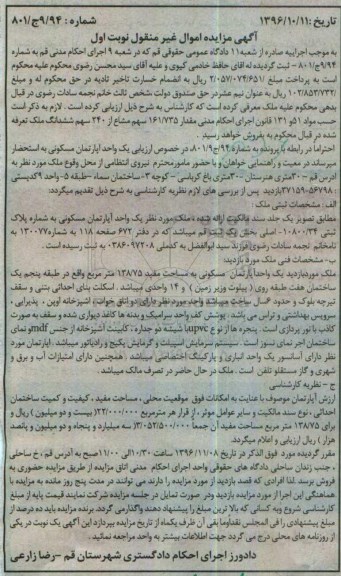 تاریخ :۱۳۹۶/۱۰/۱۱ شماره : ۹/۹۴ج/۸۰۱
آگهی مزایده اموال غیر منقول نوبت اول
به موجب اجراییه صادره از شعبه۱۱ دادگاه عمومی حقوقی قم که در شعبه ۹ اجرای احکام مدنی قم به شماره
۹/۹۴ج/۸۰۱ - ثبت گردیده له آقای حافظ خادمی کیوی و علیه آقای سید محسن رضوی محکوم علیه محکوم
است به پرداخت مبلغ ۲/۰۵۷/۰۷۴/۶۵۱ ریال به انضمام خسارت تاخیر تادیه در حق محکوم له و مبلغ
۱۰۲/۸۵۳/۷۳۲ ریال به عنوان نیم عشر در حق صندوق دولت شخص ثالث خانم نجمه سادات رضوی در قبال
بدهی محکوم علیه ملک معرفی کرده است که کارشناس به شرح ذیل ارزیابی کرده است . لازم به ذکر است
حسب مواد ۵۱و ۱۳۱ قانون اجرای احکام مدنی مقدار ۱۶۱/۷۳۵ سهم مشاع از ۲۴۰ سهم ششدانگ ملک تعرفه
شده در قبال محکوم به بفروش خواهد رسید .
احتراما در رابطه با پرونده به شماره ۹/۹۴ج/۸۰۱، در خصوص ارزیابی یک واحد آپارتمان مسکونی به استحضار
میرساند در معیت و راهنمایی خواهان و با حضور مامور محترم نیروی انتظامی از محل وقوع ملک مورد نظر به
آدرس قم -۳۰متری هنرستان -۳۰۰متری باغ کرباسی - کوچه ۳-ساختمان سما- طبقه ۵- واحد ۹کدپستی
:۵۶۷۹۸-۳۷۱۵۹ بازدید پس از بررسی های لازم نظریه کارشناسی به شرح ذیل تقدیم میگردد:
الف: مشخصات ثبتی ملک :
مطابق تصویر یک جلد سند مالکیت ارائه شده ، ملک مورد نظر یک واحد آپارتمان مسکونی به شماره پلاک
ثبتی ۱۰۸۰۰/۳۴- اصلی بخش یک ثبت قم میباشد که در دفتر ۶۷۲ صفحه ۱۱۸ به شماره۱۳۰۰۷۷ به
نام خانم نجمه سادات رضوی فرزند سید ابوالفضل به کدملی ۰۳۸۶۰۹۷۲۰۸ به ثبت رسیده است .
ب- مشخصات فنی ملک مورد بازدید:
ملک موردبازدید یک واحد آپارتمان مسکونی به مساحت مفید ۱۳۸/۷۵ متر مربع واقع در طبقه پنجم یک
ساختمان هفت طبقه روی ( پیلوت وزیر زمین ) و ۱۴ واحدی میباشد . اسکلت بنای احداثی بتنی و سقف
تیرچه بلوک و حدود ۶سال ساخت میباشد واحد مورد نظر دارای دو اتاق خواب ، آشپزخانه اوپن ، پذیرایی ،
سرویس بهداشتی و تراس می باشد . پوشش کف واحد سرامیک و بدنه ها کاغذ دیواری شده و سقف به صورت
کاذب با نور پردازی است . پنجره ها از نوع upvc با شیشه دو جداره ، کابینت آشپزخانه از جنس mdf و نمای
ساختمان اجر نمای نسوز است . سیستم سرمایش اسپیلت و گرمایش پکیج و رادیاتور میباشد . آپارتمان مورد
نظر دارای آسانسور یک واحد انباری و پارکینگ اختصاصی میباشد . همچنین دارای امتیازات آب و برق و
شهری و گاز مستقلو تلفن است . ملک در حال حاضر در تصرف مالک میباشد .
ج - نظریه کارشناسی
ارزش آپارتمان موصوف با عنایت به امکانات فوق موقعیت محلی ، مساحت مفید ، کیفیت و کمیت ساختمان
احداثی ، نوع سند مالکیت و سایر عوامل موثر ، از قرار هر مترمربع ۲۲/۰۰۰/۰۰۰( بیست و دو میلیون ) ریال و
برای ۱۳۸/۷۵ متر مربع مساحت مفید آن جمعاً ۳/۰۵۲/۵۰۰/۰۰۰( سه میلیارد و پنجاه و دو میلیون و پانصد
هزار ) ریال ارزیابی و اعلام میگردد.
مقرر گردیده مورد فوق الذکر در تاریخ ۱۳۹۶/۱۱/۰۸ ساعت ۱۰/۳۰الی ۱۱/۰۰صبح به آدرس قم ،خ ساحلی
، جنب زندان ساحلی دادگاه های حقوقی واحد اجرای احکام مدنی اتاق مزایده از طریق مزایده حضوری به
فروش برسد .لذا افرادی که قصد بازدید از مورد مزایده را دارند می توانند در مدت پنج روز مانده به مزایده با
هماهنگی این اجرا از مورد مزایده بازدید ودر صورت تمایل در جلسه مزایده شرکت نمایند قیمت پایه از مبلغ
کارشناسی شروع وبه کسانی که بالا ترین مبلغ را پیشنهاد دهند واگذار می گردد. برنده مزایده باید ده درصد از
مبلغ پیشنهادی را فی المجلس تقداوما بقی آن ظرف یکماه از تاریخ مزایده بپردازد این آگهی یک نوبت در یکی
از روزنامه های محلی درج می گردد جهت اطلاعات بیشتر به واحد مراجعه نمائید .
دادورز اجرای احکام دادگستری شهرستان قم -رضا زارعی